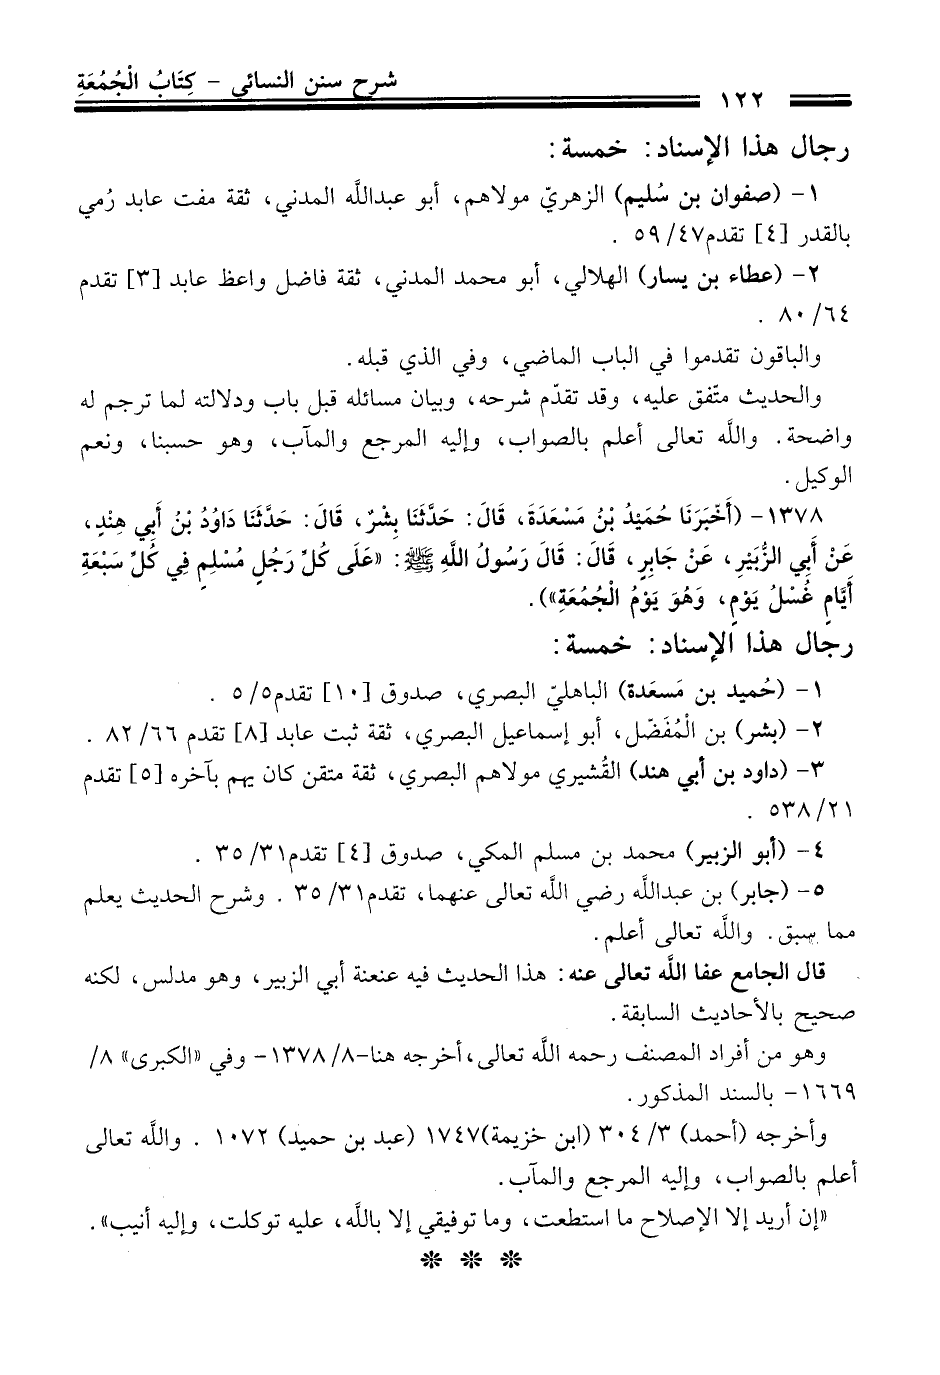 شرح سنن النسائي – كِتَابُ الْجُمُعَةِ
١٢٢
رجال هذا الإسناد: خمسة:
١- (صفوان بن سُليم) الزهريّ مولاهم، أبو عبداللَّه المدني، ثقة مفت عابد رُمي
بالقدر [٤] تقدم٤٧/ ٥٩ .
٢- (عطاء بن يسار) الهلالي، أبو محمد المدني، ثقة فاضل واعظ عابد [٣] تقدم
٦٤/ ٨٠ .
والباقون تقدموا في الباب الماضي، وفي الذي قبله.
والحديث متّفق عليه، وقد تقدّم شرحه، وبيان مسائله قبل باب ودلالته لما ترجم له
واضحة. واللَّه تعالى أعلم بالصواب، وإليه المرجع والمآب، وهو حسبنا، ونعم
الوكيل.
١٣٧٨- (أَخْبَرَنَا حُمَيْدُ بْنُ مَسْعَدَةَ، قَالَ: حَدَّثَنَا بِشْرٌ، قَالَ: حَدَّثَنَا دَاوُدُ بْنُ أَبِي هِنْدٍ،
عَنْ أَبِي الزُّبَيْرِ، عَنْ جَابِرٍ، قَالَ: قَالَ رَسُولُ اللَّهِ ﷺ: «عَلَى كُلِّ رَجُلٍ مُسْلِمٍ فِي كُلِّ سَبْعَةِ
أَيَّامٍ غُسْلُ يَوْمٍ، وَهُوَ يَوْمُ الْجُمُعَةِ»).
رجال هذا الإسناد: خمسة:
١- (حُميد بن مَسعَدة) الباهليّ البصري، صدوق [١٠] تقدم٥/ ٥ .
٢- (بشر) بن الْمُفَضّل، أبو إسماعيل البصري، ثقة ثبت عابد [٨] تقدم ٦٦/ ٨٢ .
٣- (داود بن أبي هند) القُشيري مولاهم البصري، ثقة متقن كان يهم بآخره [٥] تقدم
٢١/ ٥٣٨ .
٤- (أبو الزبير) محمد بن مسلم المكي، صدوق [٤] تقدم٣١/ ٣٥ .
٥- (جابر) بن عبداللَّه رضي اللَّه تعالى عنهما، تقدم٣١/ ٣٥ . وشرح الحديث يعلم
مما سبق. واللَّه تعالى أعلم.
قال الجامع عفا اللَّه تعالى عنه: هذا الحديث فيه عنعنة أبي الزبير، وهو مدلس، لكنه
صحيح بالأحاديث السابقة.
وهو من أفراد المصنف رحمه اللَّه تعالى،أخرجه هنا-٨/ ١٣٧٨- وفي «الكبرى» ٨/
١٦٦٩- بالسند المذكور.
وأخرجه (أحمد) ٣/ ٣٠٤ (ابن خزيمة)١٧٤٧ (عبد بن حميد) ١٠٧٢ . واللَّه تعالى
أعلم بالصواب، وإليه المرجع والمآب.
«إن أريد إلا الإصلاح ما استطعت، وما توفيقي إلا باللَّه، عليه توكلت، وإليه أنيب».
* * *